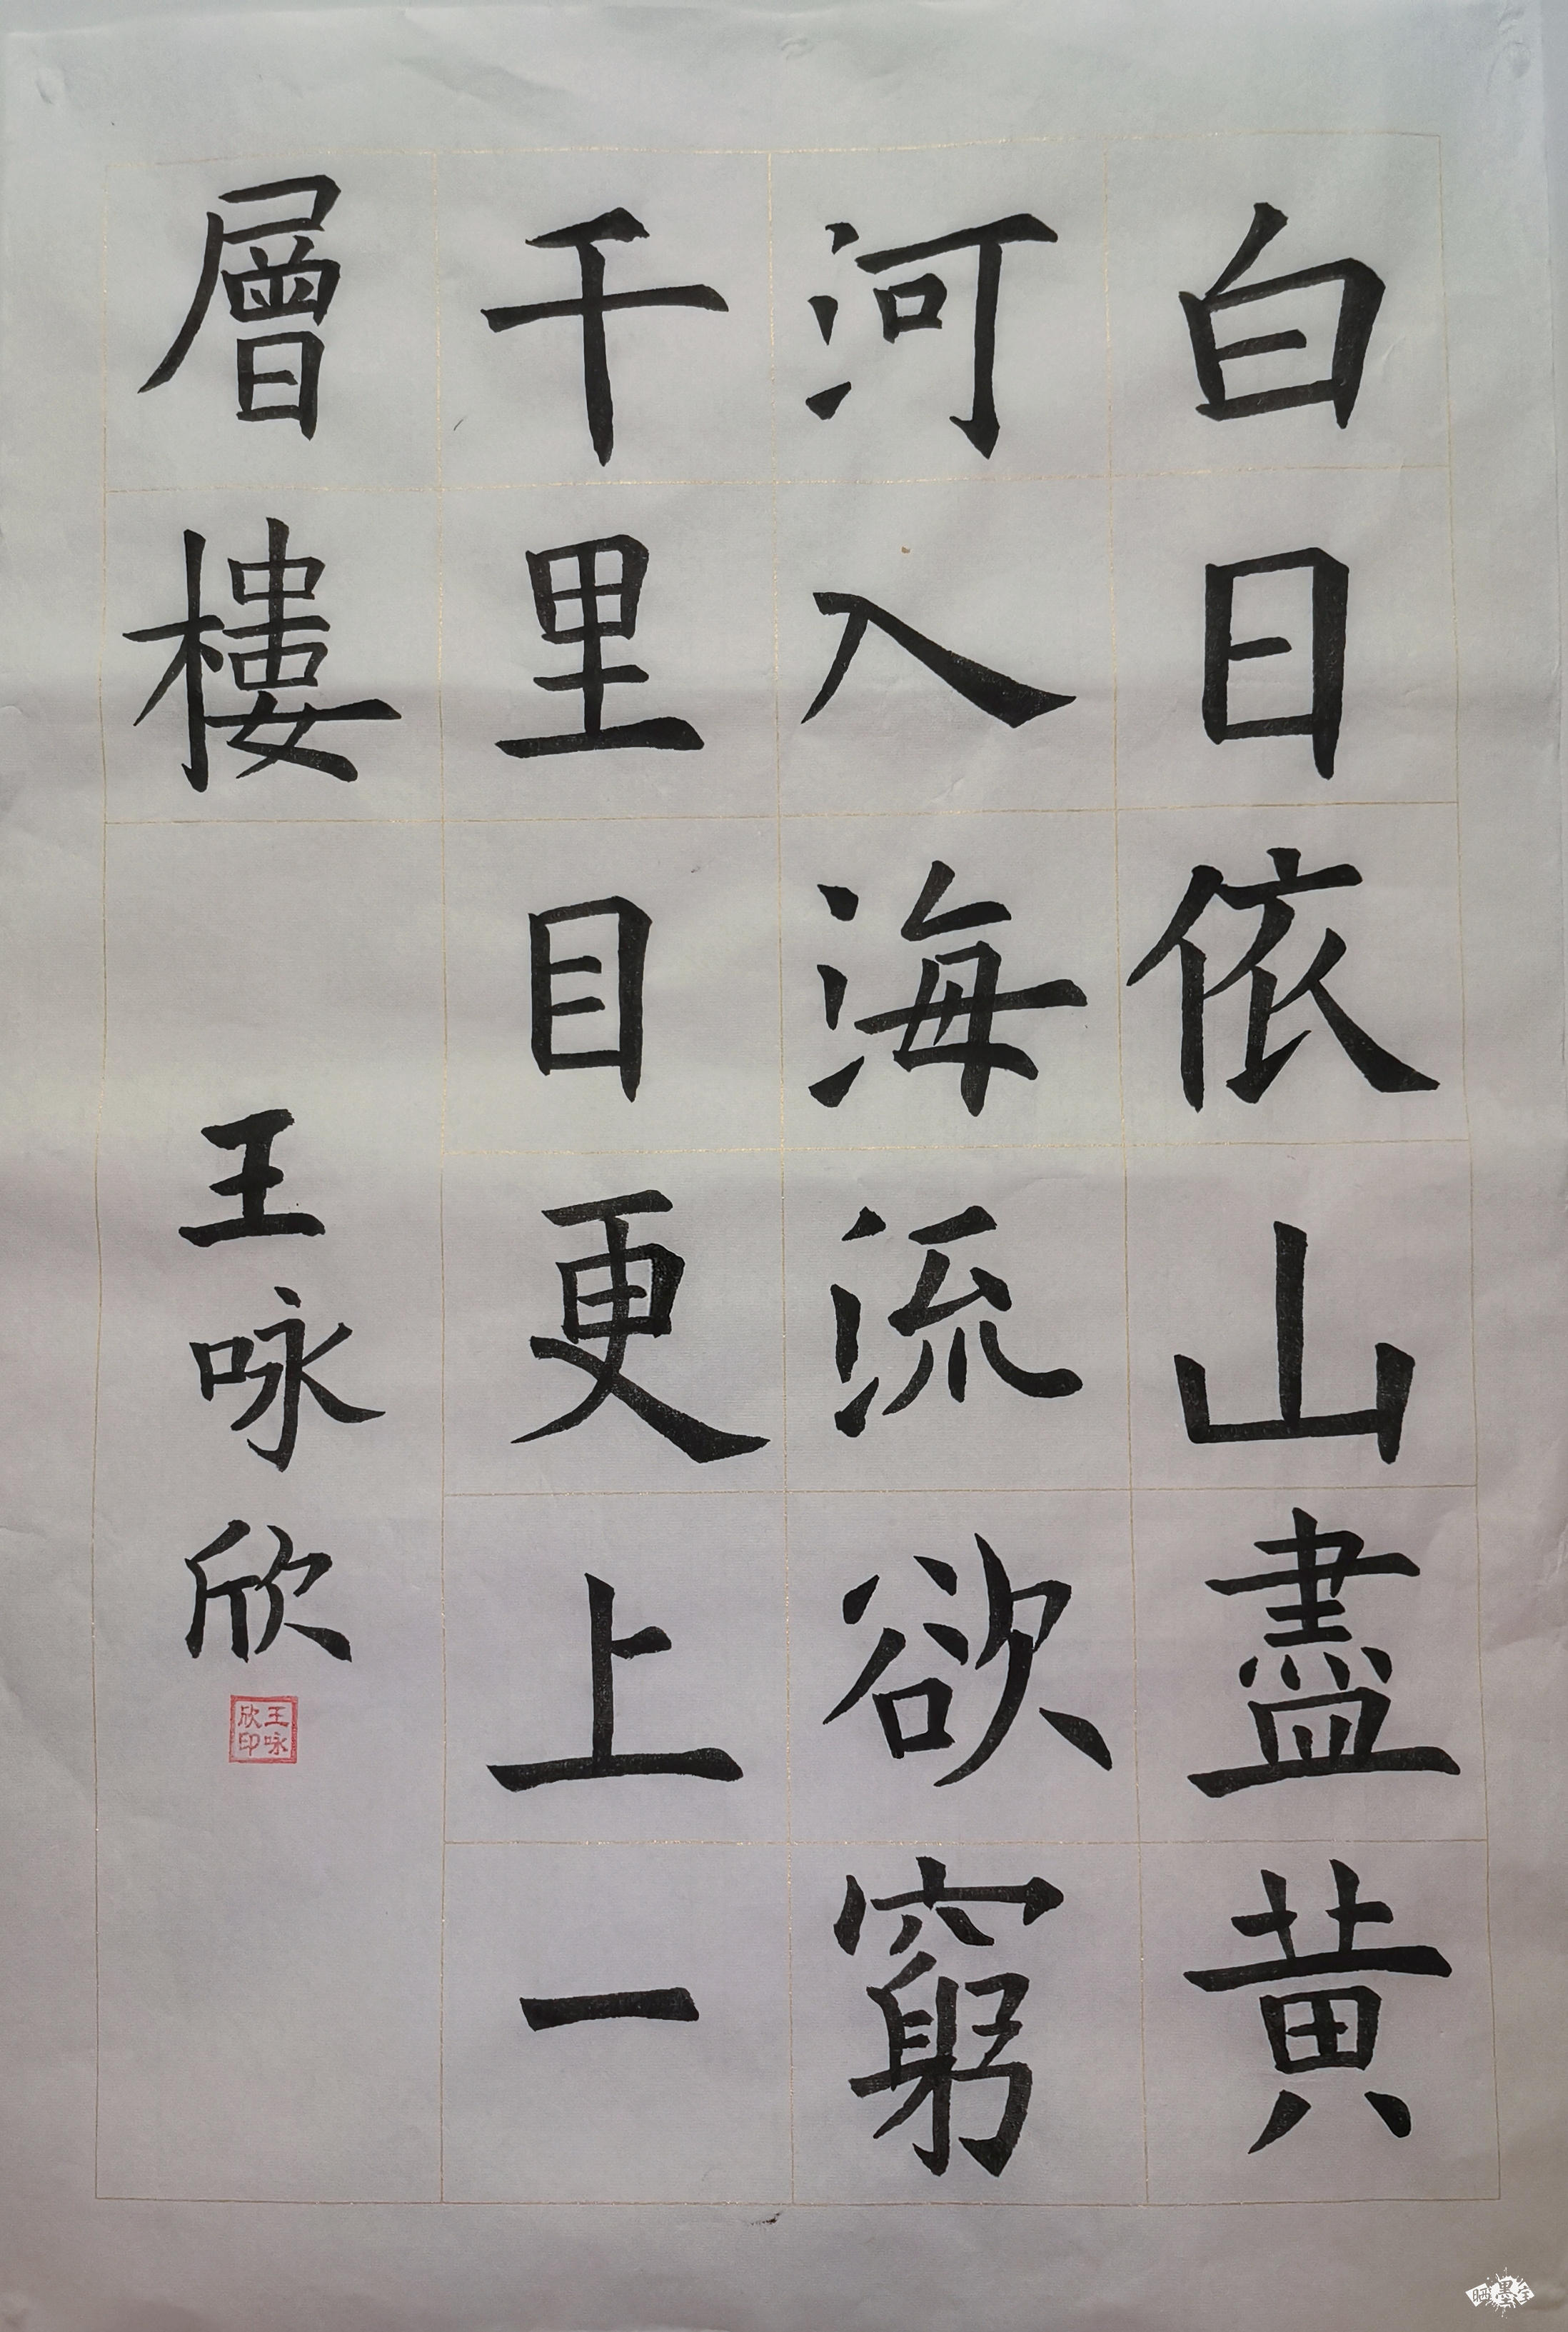 白日依山盡黃
河入海流欲窮
千里目更上一
層樓
王咏欣
王咏欣印
晒墨宝